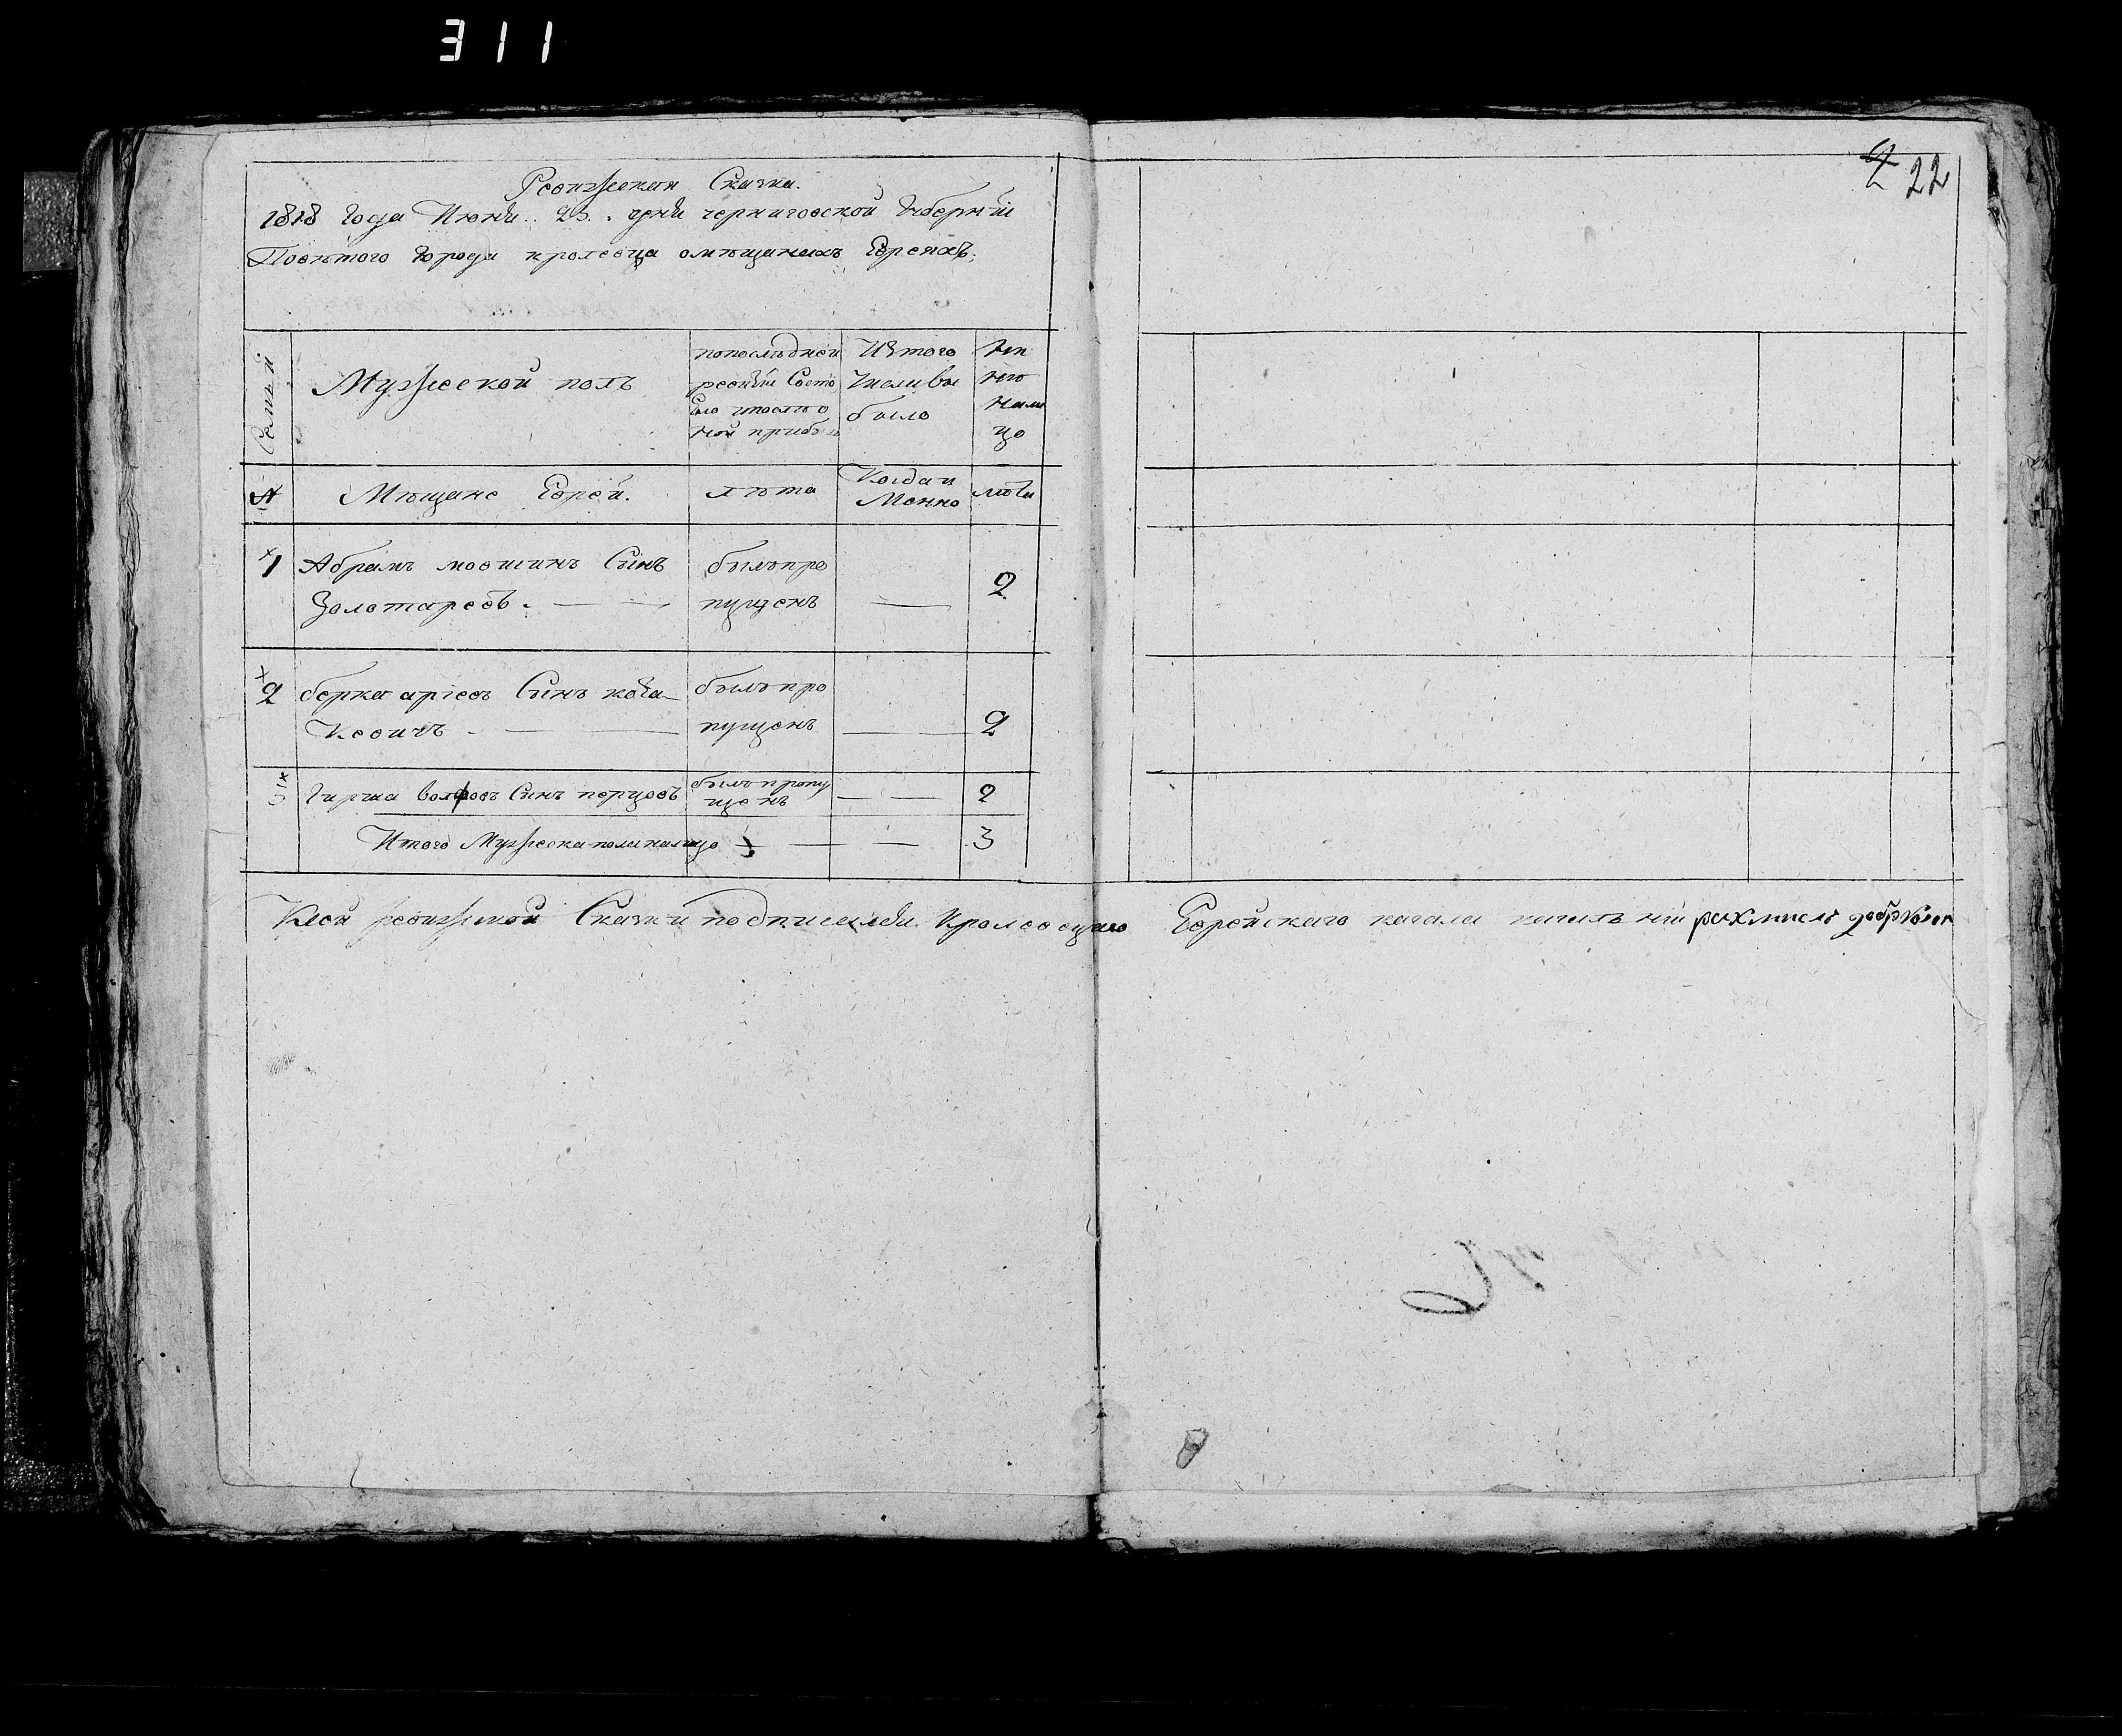 311
22
Ревизжская Сказка.
1818 Года Июня 23. дня черниговской Губернӥи
Поветого города кролевца омещанахъ Евреяхъ.
Семьи
Мужеской полъ
попоследней
ревизӥи Состо
ной прибылъ
Изтого
Числа вы
было
Ны
не
нали
цо
№
Мещане Еврей.
лета
Когда и
Менно
лета
1 Абрамъ мовшинъ Синъ
Золотаревъ. — —
былъ про
пущенъ
—
2
2 берка арӥевъ Синъ
былъ про
пущенъ
—
2
3 Гирша волфовъ Синъ перцовъ
былъ пропу
щенъ
— —
2
Итого Мужеска пола налицо 3 — —
3
Ксей ревизжской Сказки подписался Кролевецкаго Еврейскаго кагала рахмиель